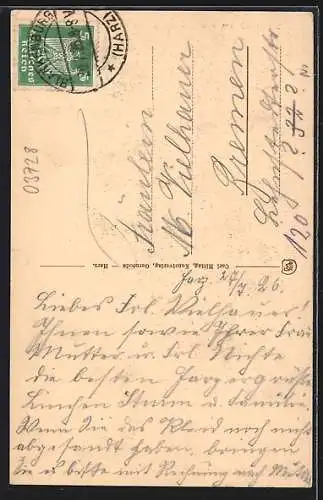 (HARZ)
5 5
Deutsches Reich
03728
Fräulein
M. Vielhauer
Bremen
120
Carl Mittag, Kunstverlag, Gernrode Harz.
Harz, 27/7. 26.
Liebes Frl. Vielhauer!
Ihnen sowie Ihrer Frau
Mutter u. Frl. Nichte
die besten Harzergrüße
Linchen Sturm u. Familie.
Wenn Sie das Kleid noch nicht
abgesandt haben, bringen
Sie es bitte mit Rechnung nach